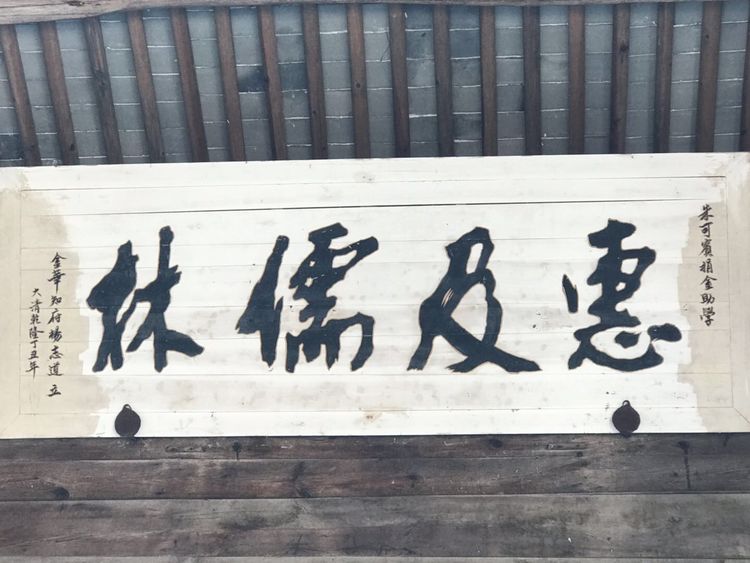 朱可賓捐金助學
惠及儒林
金華知府楊志道立
大清乾隆丁丑年